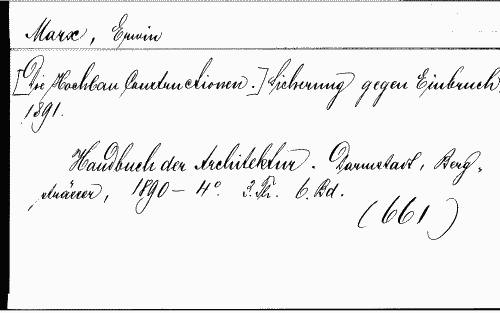 Marx, Erwin
[Die Hochbau Constructionen.] Sicherung gegen Einbruch.
1891.
Handbuch der Architektur. Darmstadt, Berg-
strässer, 1890- 4°. 3. Th. 6. Bd.
(661)